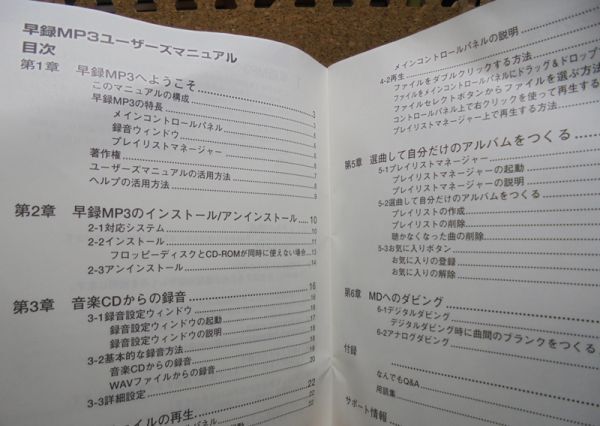 早録MP3ユーザーズマニュアル
目次
第1章 早録MP3へようこそ
このマニュアルの構成
早録MP3の特長 3
メインコントロールパネル 4
録音ウィンドウ 5
プレイリストマネージャー 6
著作権 7
ユーザーズマニュアルの活用方法 8
ヘルプの活用方法 9
第2章 早録MP3のインストール/アンインストール 10
2-1対応システム 11
2-2インストール 11
フロッピーディスクとCD-ROMが同時に使えない場合 13
2-3アンインストール 14
第3章 音楽CDからの録音 16
3-1録音設定ウィンドウ
録音設定ウィンドウの起動
録音設定ウィンドウの説明
3-2基本的な録音方法
音楽CDからの録音
WAVファイルからの録音 20
3-3詳細設定
イルの再生 22
パネル 22
メインコントロールパネルの説明
4-2再生
ファイルをダブルクリックする方法
ファイルをメインコントロールパネルにドラッグ&ドロップ
ファイルセレクトボタンからファイルを選ぶ方法
コントロールパネル上で右クリックを使って再生する
プレイリストマネージャー上で再生する方法
第5章 選曲して自分だけのアルバムをつくる
5-1プレイリストマネージャー
プレイリストマネージャーの起動
プレイリストマネージャーの説明
5-2選曲して自分だけのアルバムをつくる
プレイリストの作成
プレイリストの削除
聴かなくなった曲の削除
5-3お気に入りボタン
お気に入りの登録
お気に入りの解除
第6章 MDへのダビング
6-1デジタルダビング
デジタルダビング時に曲間のブランクをつくる
6-2アナログダビング
付録
なんでもQ&A
用語集
サポート情報